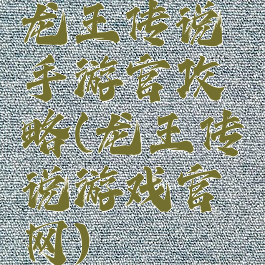 龙王传说
手游官攻
略(龙王传
说游戏官
网)